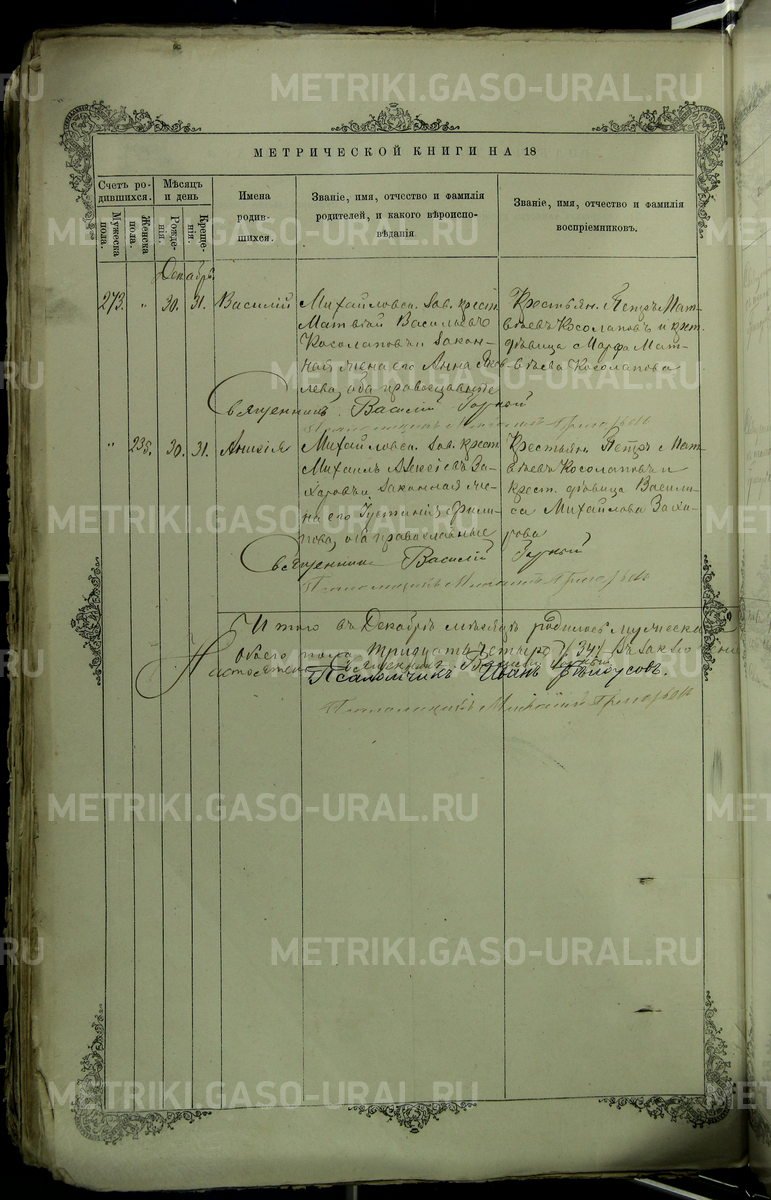 METRIKI.GASO-URAL.RU
МЕТРИЧЕСКОЙ КНИГИ НА 18
Счетъ родившихся.
Мужеска пола.
Женска пола.
Мѣсяцъ и день
Рожденія.
Крещенія.
Имена родившихся.
Званіе, имя, отчество и фамилія родителей, и какого вѣроисповѣданія
Званіе, имя, отчество и фамилія воспріемниковъ.
Декабрь
273. " 30. 31. Василій
Михайловск. Зав. крест.
Матвѣй Васильевъ
Косолаповъ и закон-
ная жена его Анна
оба православные
Крестьян. Петръ Мат-
вѣевъ Косолаповъ и крест.
дѣвица Марфа Мат-
вѣева Косолапова
Священникъ Василій
" 235. 30. 31. Анисія
Михайловск. Зав. крест.
Михаилъ Алексѣевъ За-
харовъ и законная же-
на его Филип-
пова, оба православные
Крестьян. Петръ Мат-
вѣевъ Косолаповъ и
крест. дѣвица Васили-
са Михайлова Заха-
рова
Священникъ Василій
И того въ Декабрѣ мѣсяцѣ родилось мужеска
обоего пола тридцать четыре /34/
Священникъ Василій
Псаломщикъ Иванъ Бѣлоусовъ.